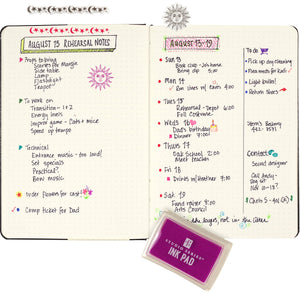 AUGUST 15 REHEARSAL NOTES
Props to bring
Scarves for Marge
Side table
Lamp
Flashlight
Teapot
To work on
Transition - 1+2
Energy levels
Improv game - Cats + mice
Speed up tempo
Technical
Entrance music - too loud!
Set specials
Practical?
Bow music
Order flowers for cast!
Comp ticket for Dad
AUGUST 13-19
Sun 13
Book club - 3rd home
Bring dip 5:00
Mon 14
Run lines w/ 4:00
Tues 15
Rehearsal - Depot 6:00
Full Costume
Weds 16
Dad's birthday
Dinner 7:00
Thurs 17
Oak School 2:00
Meet teacher
Fri 18
Drinks w/Heather 7:30
Sat 19
Fund raiser 9:00
Arts Council
the laughs, not in the
To do
Pick up dry cleaning
Plan meals for
Light bulbs!
Return Shoes
Stern's Bakery
442-3571
Contact
Sound designer
Call Andy-
Nov 10-13?
Chets 5-6a (A)
STUDIO SERIES
INK PAD